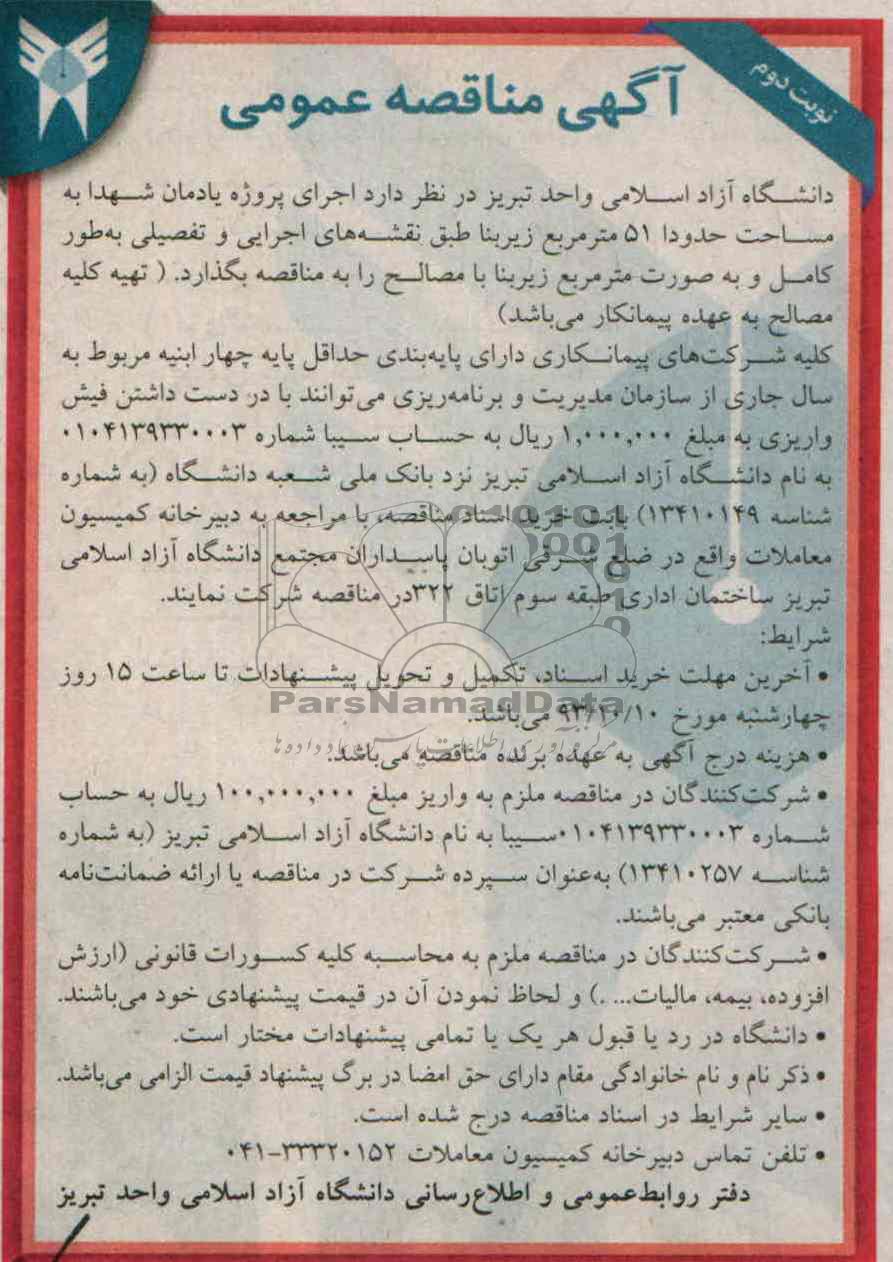 نوبت دوم
آگهی مناقصه عمومی
دانشگاه آزاد اسلامی واحد تبریز در نظر دارد اجرای پروژه یادمان شهدا به
مساحت حدودا ۵۱ مترمربع زیربنا طبق نقشه‌های اجرایی و تفصیلی به‌طور
کامل و به صورت مترمربع زیربنا با مصالح را به مناقصه بگذارد. ( تهیه کلیه
مصالح به عهده پیمانکار می‌باشد)
کلیه شرکت‌های پیمانکاری دارای پایه‌بندی حداقل پایه چهار ابنیه مربوط به
سال جاری از سازمان مدیریت و برنامه‌ریزی می‌توانند با در دست داشتن فیش
واریزی به مبلغ ۱,۰۰۰,۰۰۰ ریال به حساب سیبا شماره ۰۱۰۴۱۳۹۳۳۰۰۰۳
به نام دانشگاه آزاد اسلامی تبریز نزد بانک ملی شعبه دانشگاه (به شماره
شناسه ۱۳۴۱۰۱۴۹) بابت خرید اسناد مناقصه، با مراجعه به دبیرخانه کمیسیون
معاملات واقع در ضلع شرقی اتوبان پاسداران مجتمع دانشگاه آزاد اسلامی
تبریز ساختمان اداری طبقه سوم اتاق ۳۲۲در مناقصه شرکت نمایند.
شرایط:
• آخرین مهلت خرید اسناد، تکمیل و تحویل پیشنهادات تا ساعت ۱۵ روز
چهارشنبه مورخ ۹۳/۱۰/۱۰ می‌باشد.
ParsNamadData
• هزینه درج آگهی به عهده برنده مناقصه می‌باشد.
• شرکت‌کنندگان در مناقصه ملزم به واریز مبلغ ۱۰۰,۰۰۰,۰۰۰ ریال به حساب
شماره ۰۱۰۴۱۳۹۳۳۰۰۰۳سیبا به نام دانشگاه آزاد اسلامی تبریز (به شماره
شناسه ۱۳۴۱۰۲۵۷) به‌عنوان سپرده شرکت در مناقصه یا ارائه ضمانت‌نامه
بانکی معتبر می‌باشند.
• شرکت‌کنندگان در مناقصه ملزم به محاسبه کلیه کسورات قانونی (ارزش
افزوده، بیمه، مالیات... .) و لحاظ نمودن آن در قیمت پیشنهادی خود می‌باشند.
• دانشگاه در رد یا قبول هر یک یا تمامی پیشنهادات مختار است.
• ذکر نام و نام خانوادگی مقام دارای حق امضا در برگ پیشنهاد قیمت الزامی می‌باشد.
• سایر شرایط در اسناد مناقصه درج شده است.
• تلفن تماس دبیرخانه کمیسیون معاملات ۳۳۳۲۰۱۵۲-۰۴۱
دفتر روابط‌عمومی و اطلاع‌رسانی دانشگاه آزاد اسلامی واحد تبریز